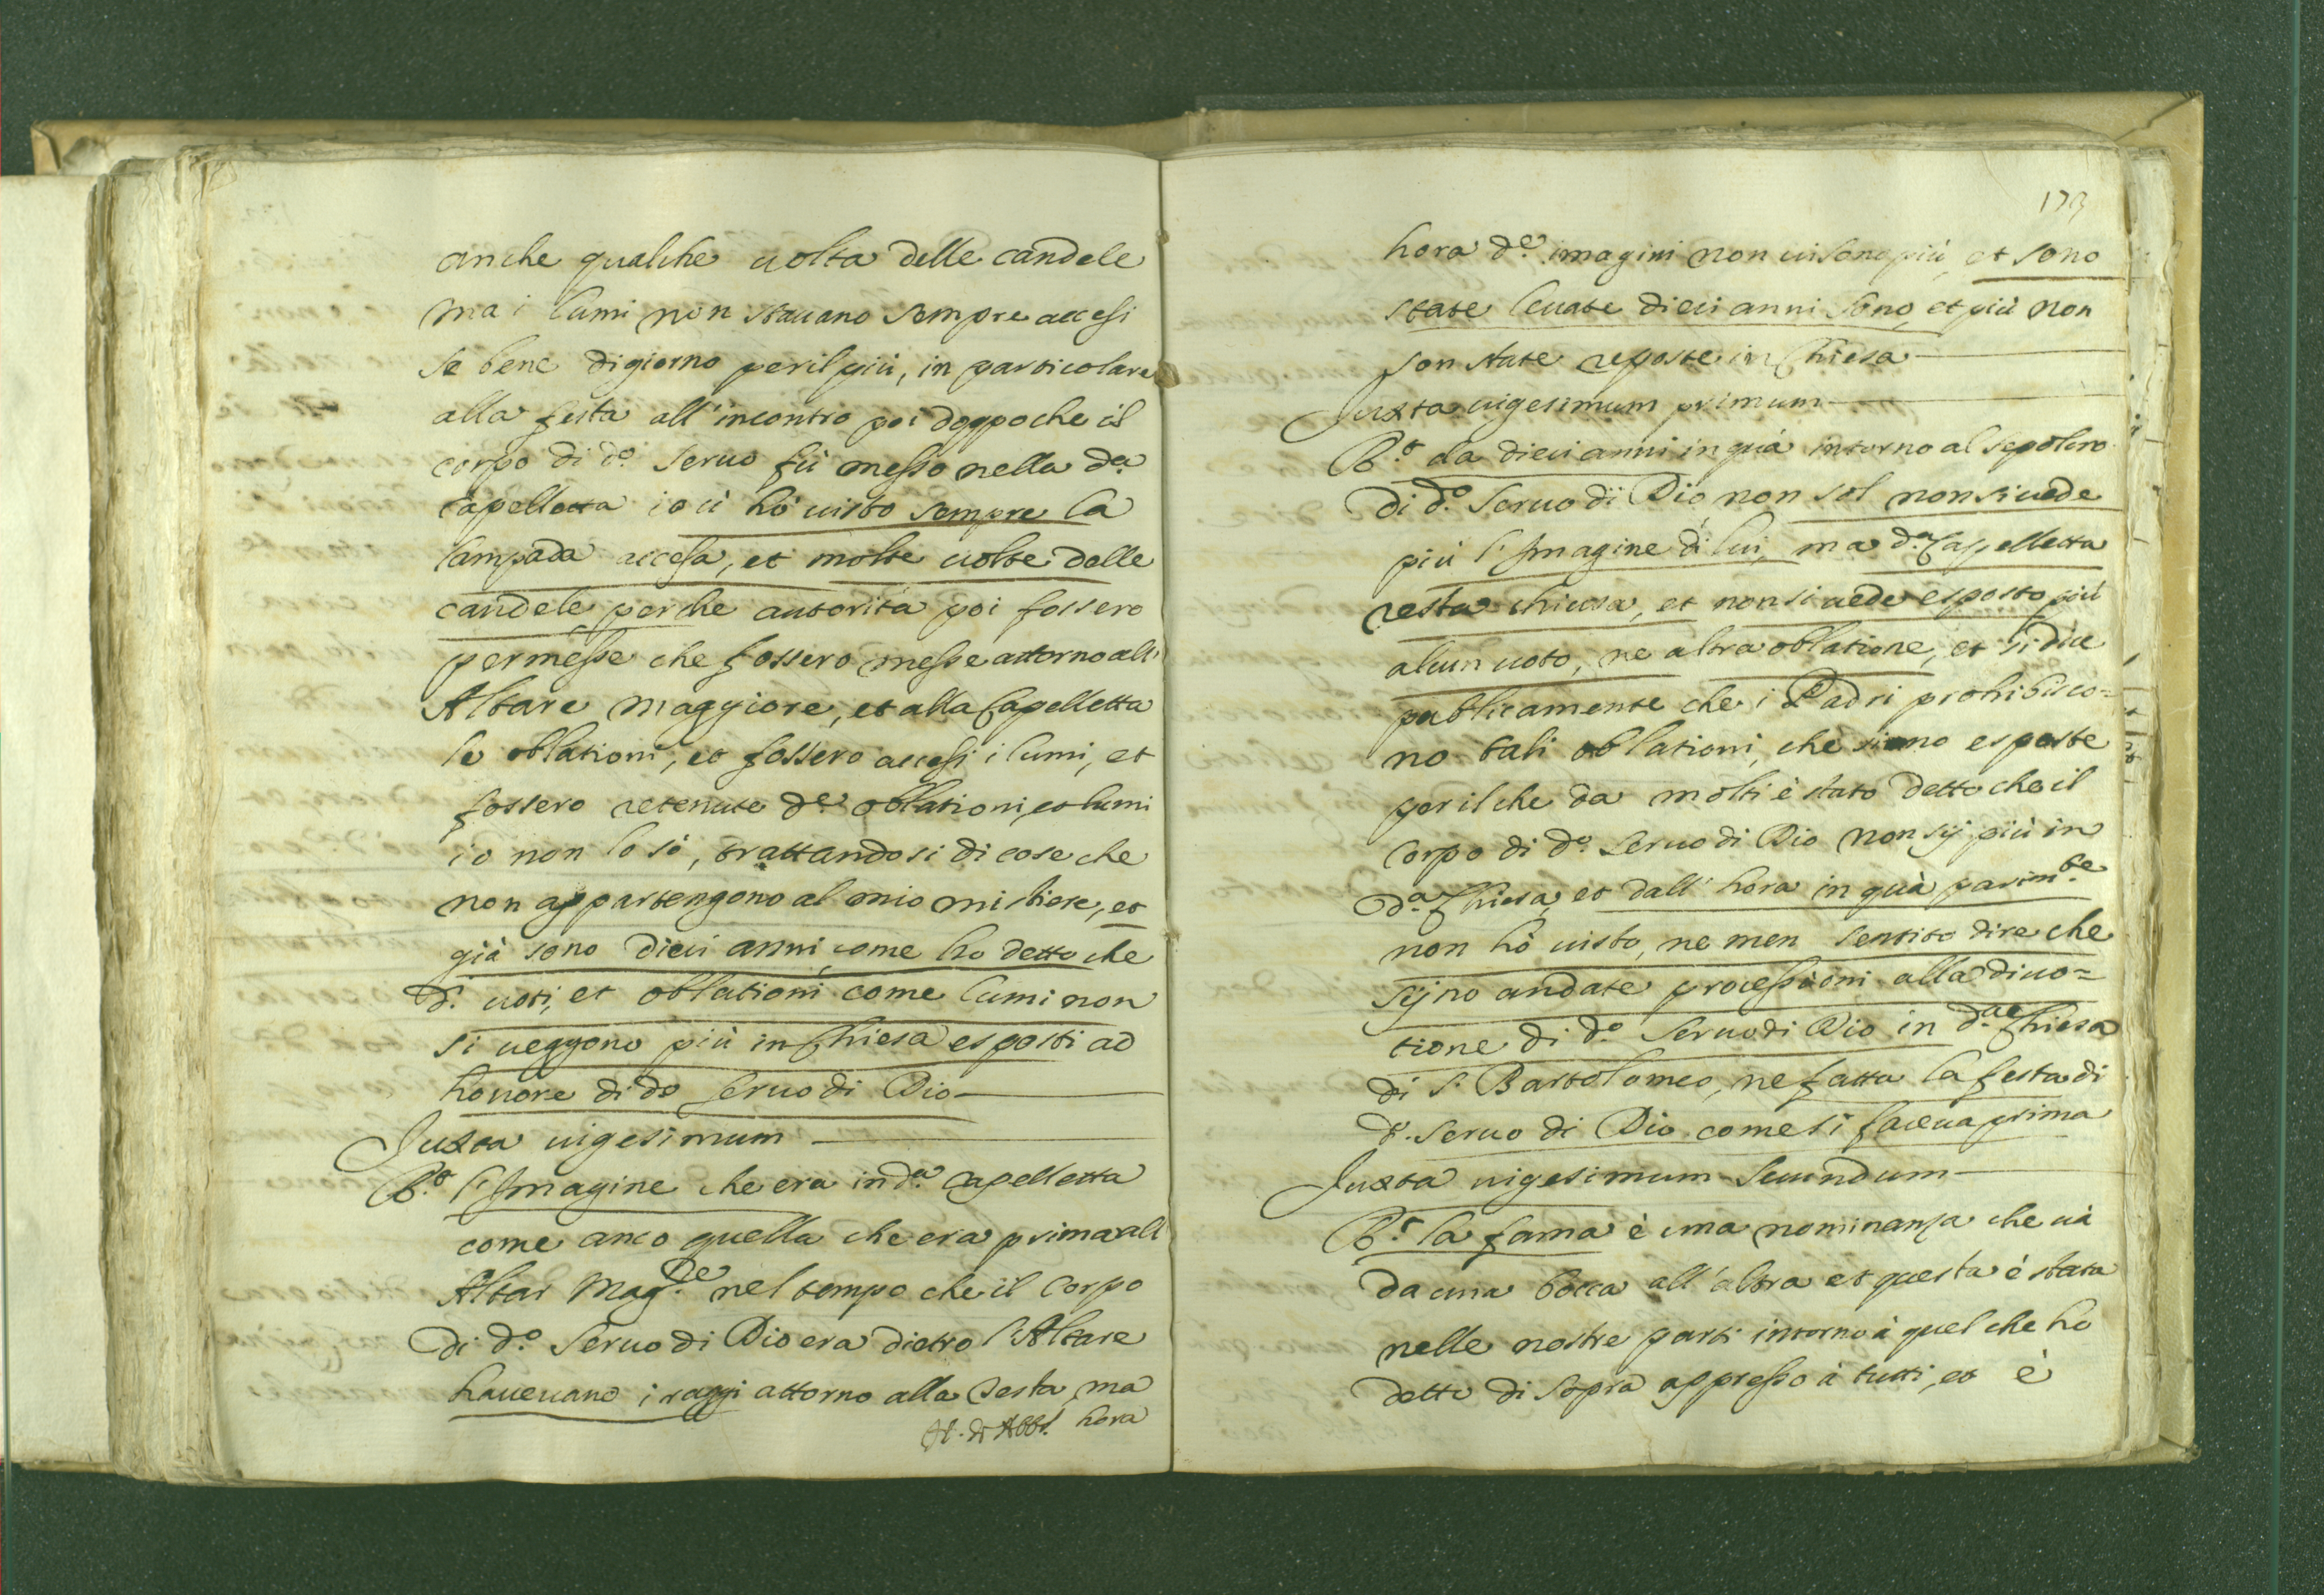 anche qualche uolta delle candele
ma i lumi non stauano sempre accesi
se bene di giorno per il più, in particolare
alla festa all'incontro poi doppo che il
corpo di d.o seruo fù messo nella d.a
Capelletta io ui hò uisto sempre la
lampada accesa, et molte uolte delle
candele, perche autorità poi fossero
permesse che fossero messe attorno all'
Altare maggiore, et alla Capelletta
le oblationi, et fossero accesi i lumi, et
fossero retenute d.e oblationi, et lumi
io non lo sò, trattandosi di cose che
non appartengono al mio mistiere, et
già sono dieci anni come ho detto che
d.i uoti, et oblationi come lumi non
si ueggono più in Chiesa esposti ad
honore di do seruo di Dio
Juxta uigesimum
R.o l'Imagine che era in d.a Capelletta
come anco quella che era prima all
Altar Mag.re nel tempo che il Corpo
di d.o Seruo di Dio era dietro l'Altare
haueuano i raggi attorno alla testa, ma
hora
173
hora d.e imagini non ui sono più, et sono
state leuate dieci anni sono, et più non
son state reposte in Chiesa
Juxta uigesimum primum
R.o da dieci anni in quà intorno al sepolcro
di d.o Seruo di Dio non sol non si uede
più l'Imagine di lui, ma d.a Capelletta
resta chiusa, et non si uede esposto più
alcun uoto, ne altra oblatione, et si dice
publicamente che i Padri prohibisco=
no tali oblationi, che siano esposte
per il che da molti è stato detto che il
Corpo di d.o Seruo di Dio non sij più in
d.a Chiesa, et dall'hora in quà parim.te
non hò uisto, ne men sentito dire che
sijno andate processioni alla diuo=
tione di d.o Seruo di Dio in d.a Chiesa
di S. Bartolomeo, ne fatta la festa di
d.o Seruo di Dio come si faceua prima
Juxta uigesimum secundum
R.o la fama è una nominanza che uà
da una bocca all'altra et questa è stata
nelle nostre parti intorno à quel che ho
detto di sopra appresso à tutti, et è